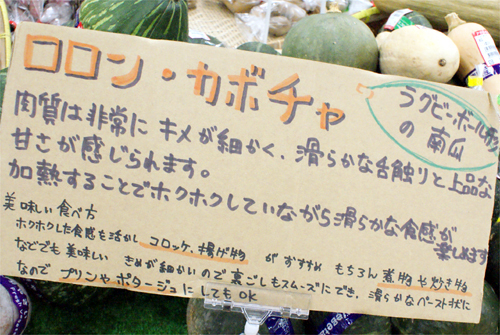 ロロン・カボチャ
ラグビーボール型
の南瓜
肉質は非常にキメが細かく、滑らかな舌触りと上品な
甘さが感じられます。
加熱することでホクホクしていながら滑らかな食感が
楽しめます
美味しい食べ方
ホクホクした食感を活かしコロッケ、揚げ物がおすすめ もちろん煮物や炊き物
などでも美味しい きめが細かいので裏ごしもスムーズにでき、滑らかなペースト状に
なので プリンやポタージュにしてもOK